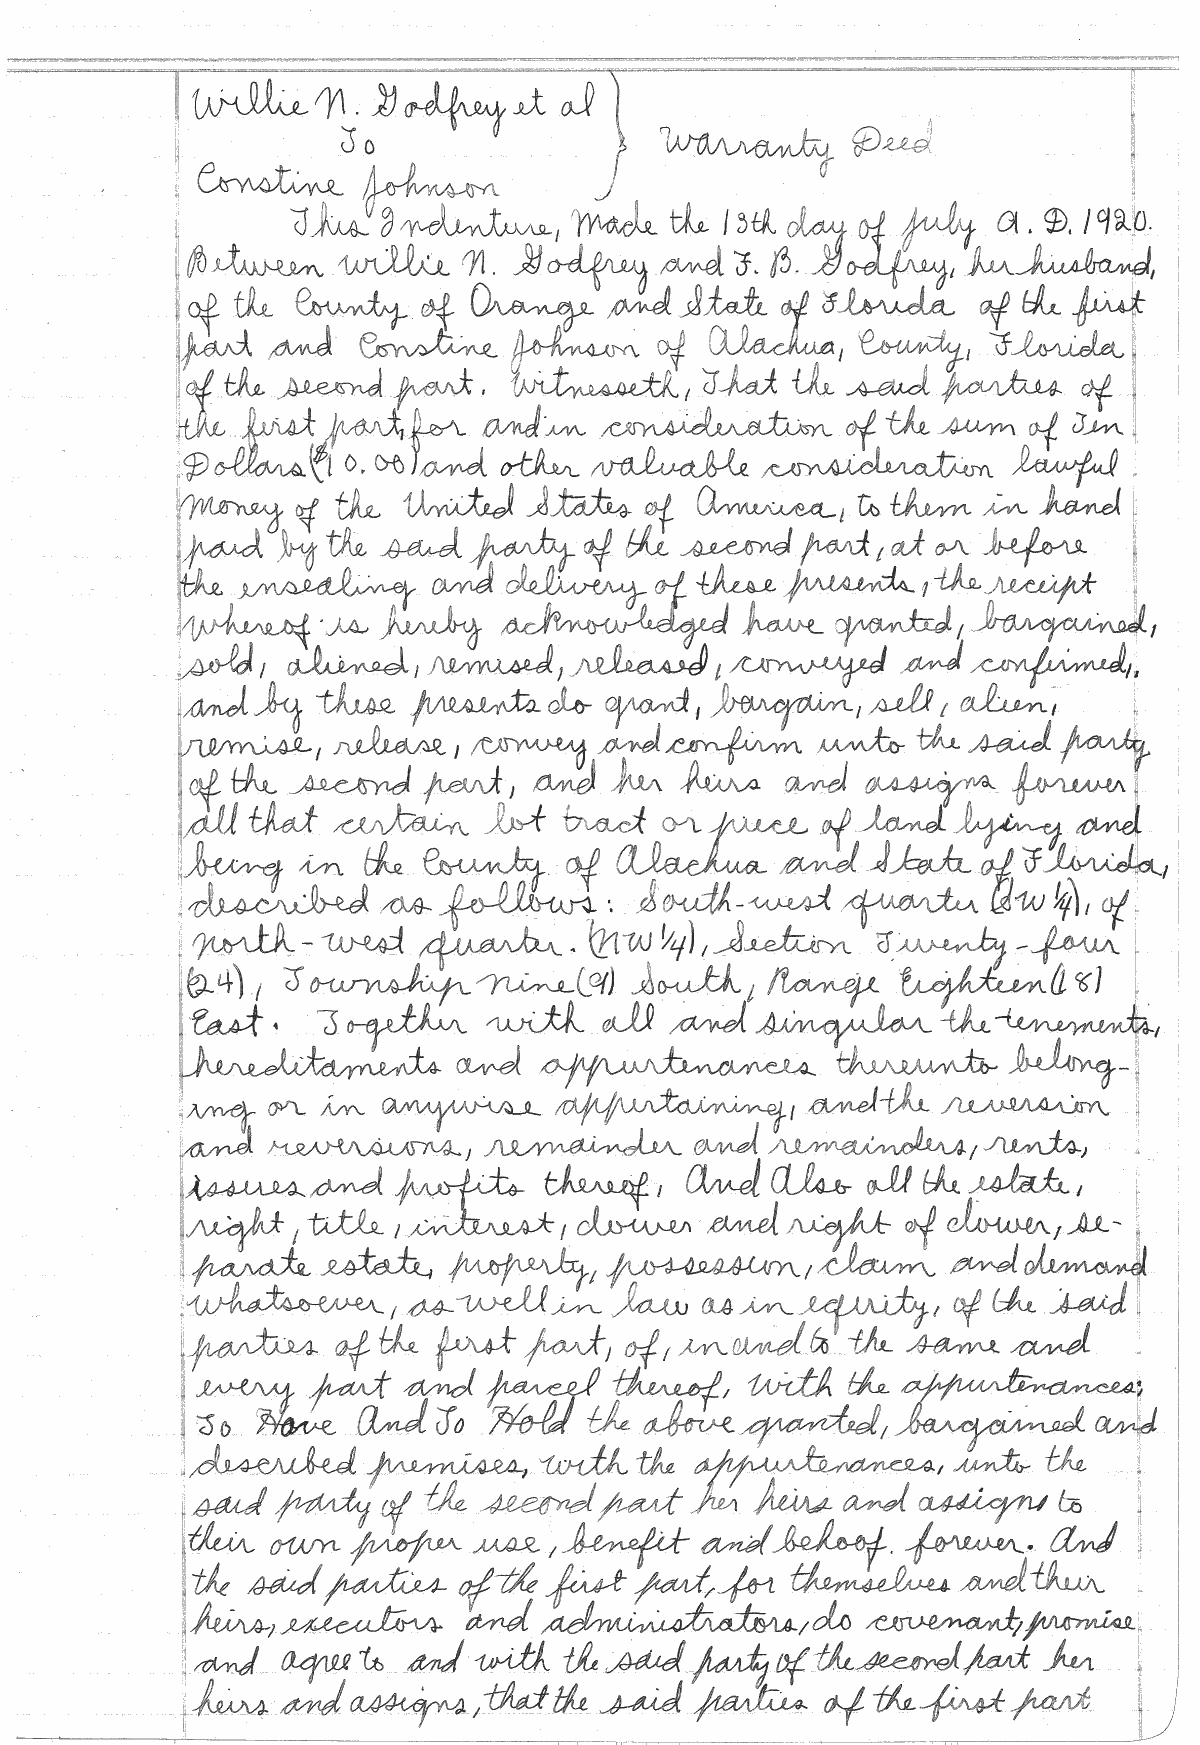 Willie N. Godfrey et al
To
Warranty Deed
Constine Johnson
This Indenture, Made the 13th day of July A. D. 1920.
Between Willie N. Godfrey and F. B. Godfrey, her husband,
of the County of Orange and State of Florida of the first
part and Constine Johnson of Alachua, County, Florida
of the second part. Witnesseth, That the said parties of
the first part, for and in consideration of the sum of Ten
Dollars ($10.00) and other valuable consideration lawful
Money of the United States of America, to them in hand
paid by the said party of the second part, at or before
the ensealing and delivery of these presents, the receipt
Whereof is hereby acknowledged have granted, bargained,
sold, aliened, remised, released, conveyed and confirmed,
and by these presents do grant, bargain, sell, alien,
remise, release, convey and confirm unto the said party
of the second part, and her heirs and assigns forever
all that certain lot tract or piece of land lying and
being in the County of Alachua and State of Florida,
described as follows: South-west quarter (SW 1/4), of
North-west quarter. (NW 1/4), Section Twenty-four
(24), Township Nine (9) South, Range Eighteen (18)
East. Together with all and singular the tenements,
hereditaments and appurtenances thereunto belong-
ing or in anywise appertaining, and the reversion
and reversions, remainder and remainders, rents,
issues and profits thereof, And Also all the estate,
right, title, interest, dower and right of dower, se-
parate estate, property, possession, claim and demand
whatsoever, as well in law as in equity, of the said
parties of the first part, of, in and to the same and
every part and parcel thereof, With the appurtenances;
To Have And To Hold the above granted, bargained and
described premises, with the appurtenances, unto the
said party of the second part her heirs and assigns to
their own proper use, benefit and behoof. forever. And
the said parties of the first part, for themselves and their
heirs, executors and administrators, do covenant, promise
and agree to and with the said party of the second part her
heirs and assigns, that the said parties of the first part